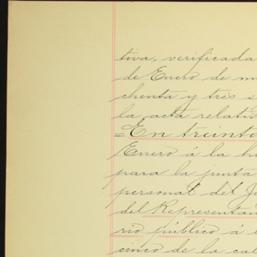 tiva, verificada
de Enero de m
chenta y tres s
la acta relati
=En treinta
Enero á la h
para la junta
personal del J
del Representan
rio público á e
cinco de la cal